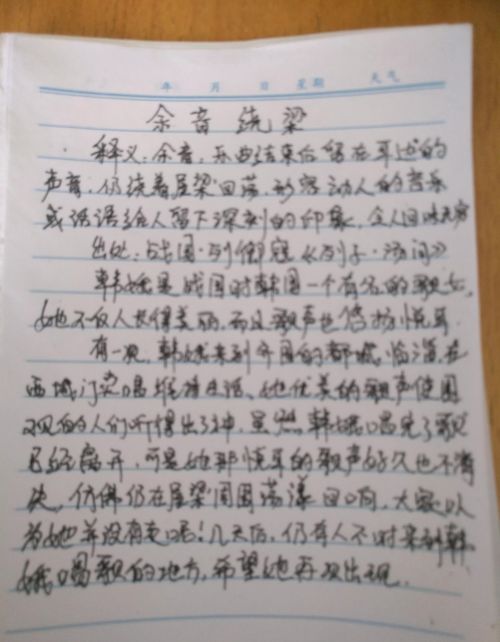 年 月 日 星期 天气
余音绕梁
释义:余音,乐曲结束后留在耳边的
声音,仍绕着屋梁回荡,形容动人的音乐
或话语给人留下深刻的印象,令人回味无穷
出处:战国·列御寇《列子·汤问》
韩娥是战国时韩国一个有名的歌女,
她不仅人长得美丽,而且歌声也悠扬悦耳.
有一次,韩娥来到齐国的都城临淄,在
西城门卖唱维持生活、她优美的歌声使围
观的人们听得出了神,虽然,韩娥唱完了歌
已经离开,可是她那悦耳的歌声好久也不消
失,仿佛仍在屋梁周围荡漾回响,大家以
为她并没有走呢!几天后,仍有人不时来到韩
娥唱歌的地方,希望她再次出现.